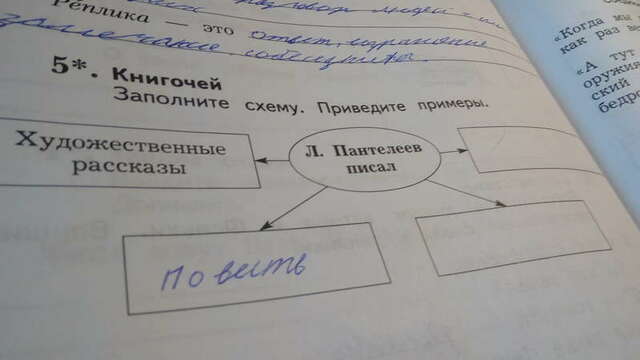 Реплика — это ответ, выражение
замечание собеседника.
5*. Книгочей
Заполните схему. Приведите примеры.
Художественные
рассказы
Л. Пантелеев
писал
повесть
«Когда мы
как раз ве
«А тут
оружия
ский
бедро